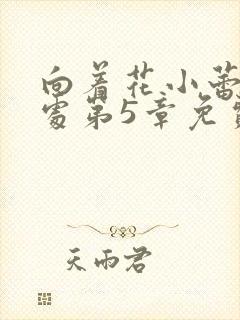 向着花小蕾
处第5章免费
天雨君